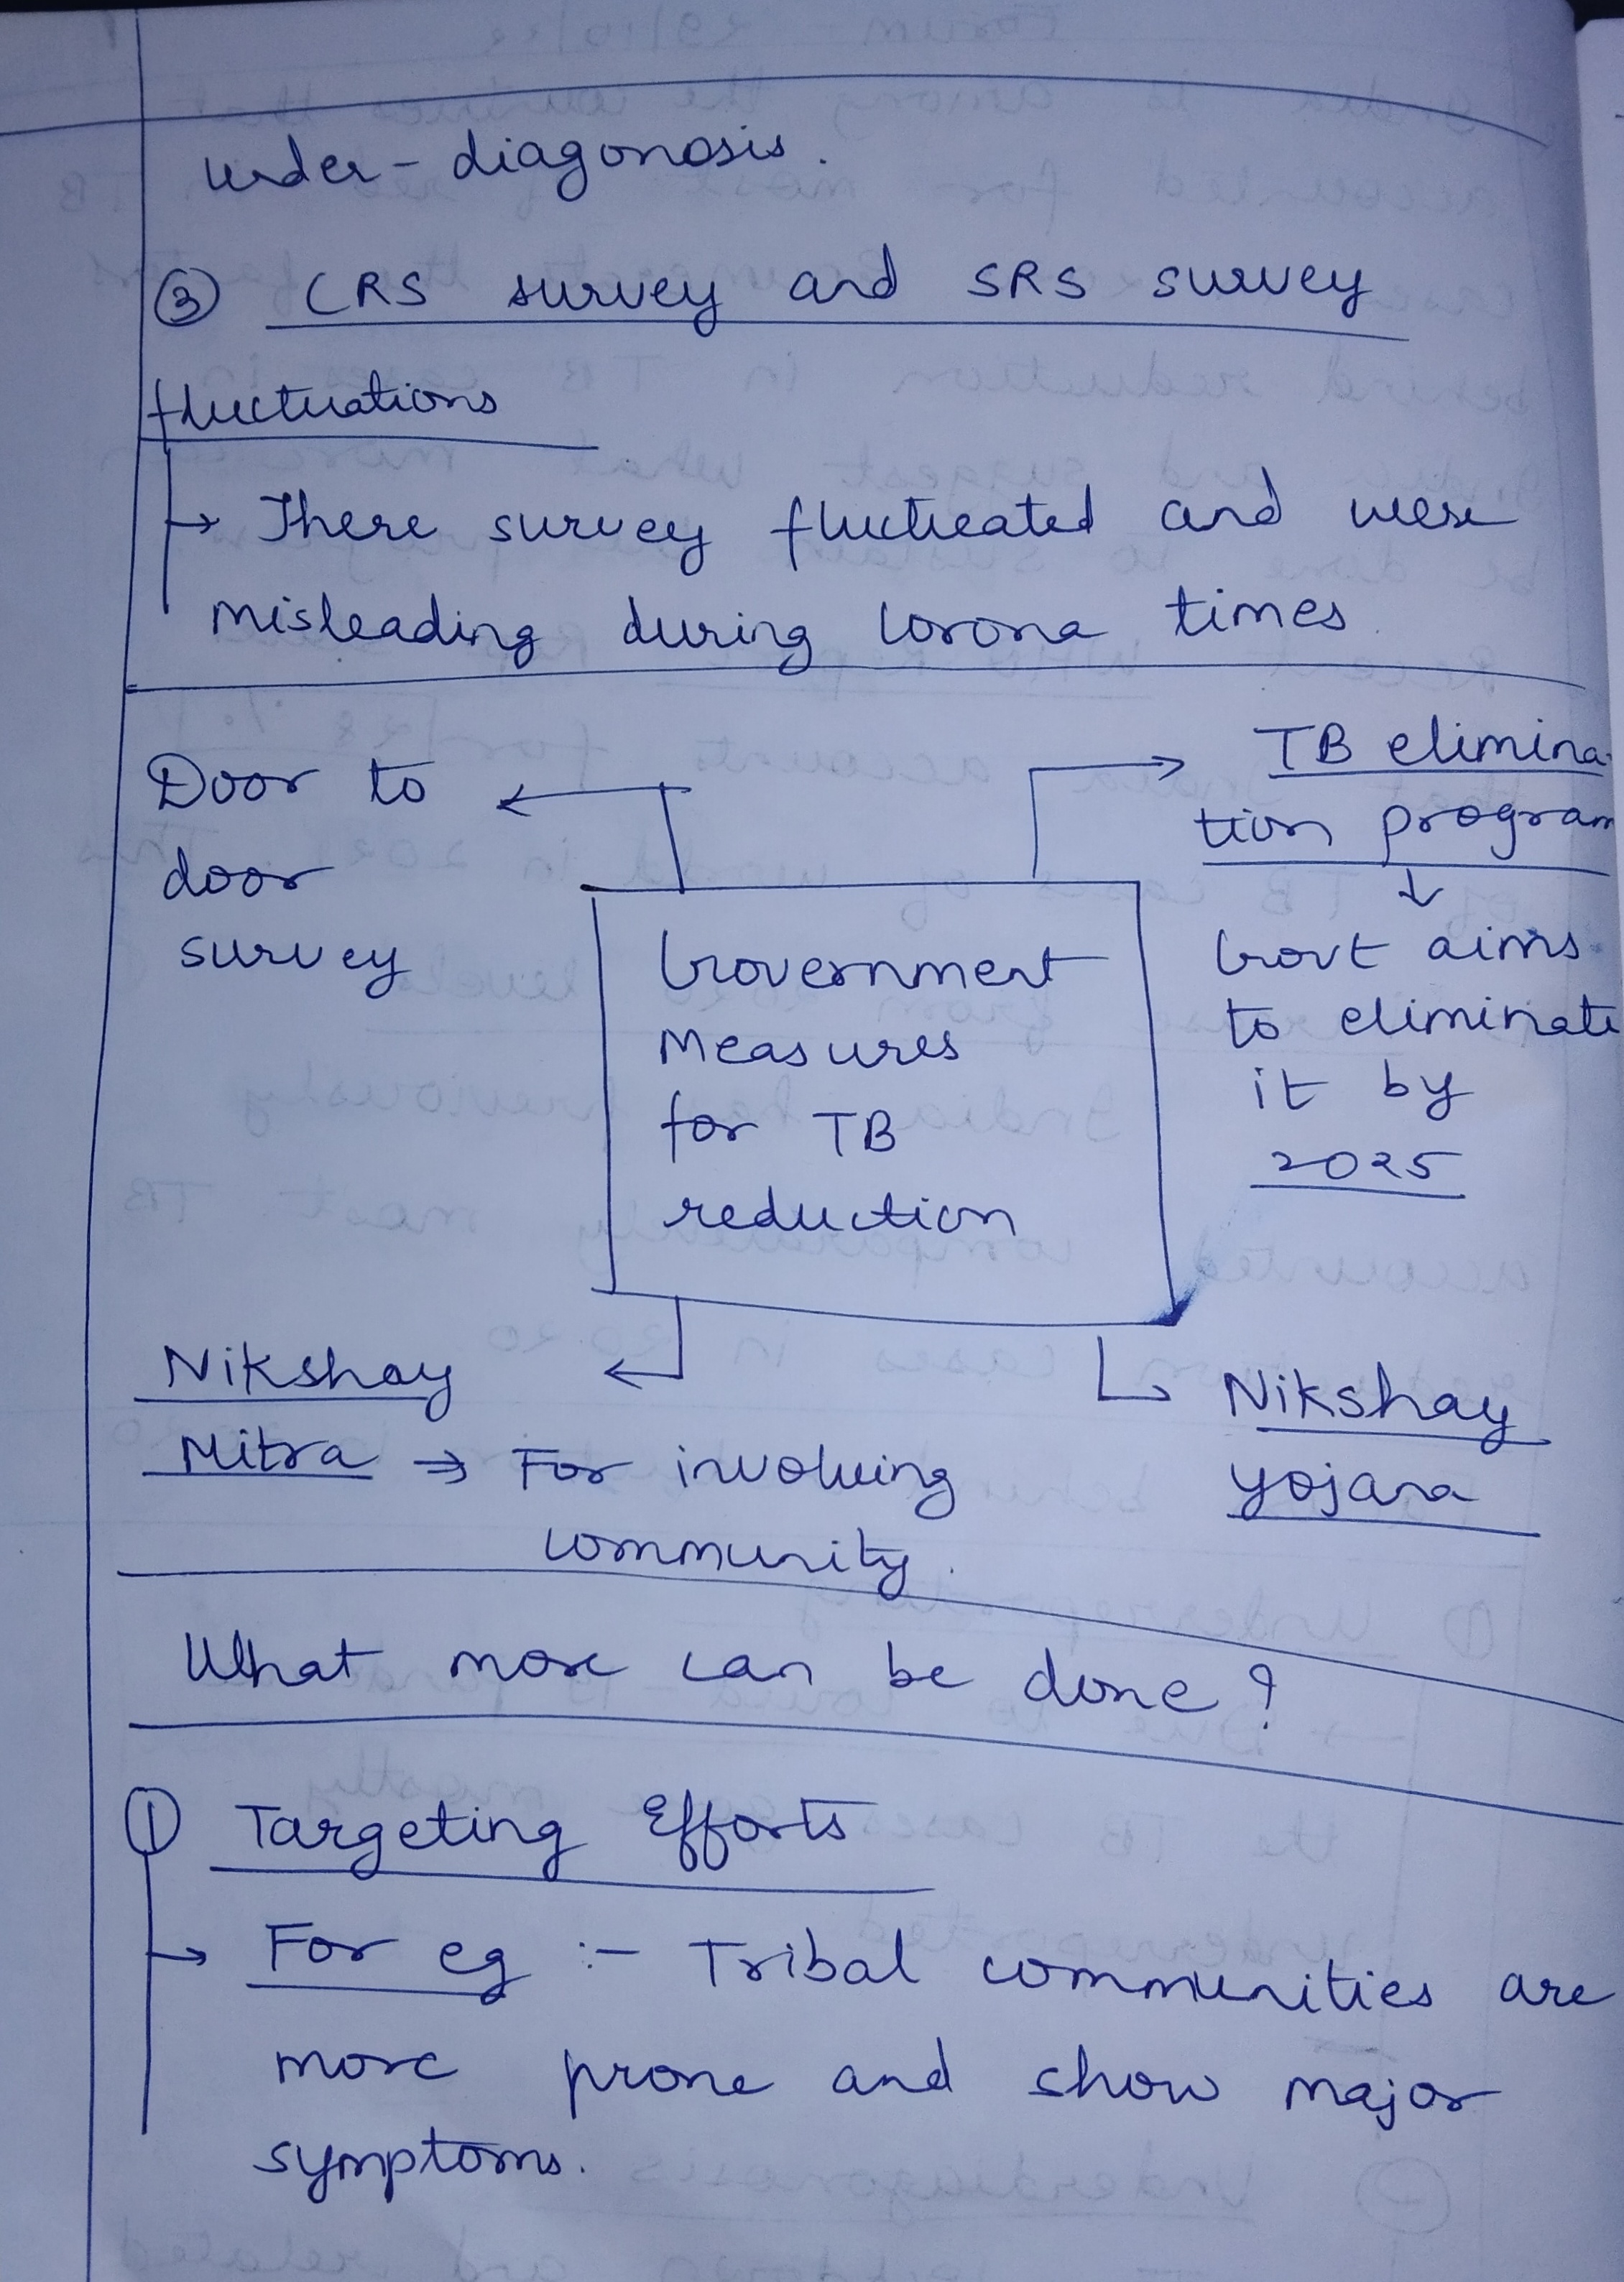 under-diagonosis.
③ CRS survey and SRS survey
fluctuations
→ There survey fluctuated and were
misleading during Corona times
Door to
door
survey
TB elimina-
tion program
↓
Govt aims
to eliminate
it by
2025
Government
Measures
for TB
reduction
Nikshay
Mitra ⇒ For involving
community.
Nikshay
yojana
What more can be done?
① Targeting Efforts
→ For eg :- Tribal communities are
more prone and show major
symptoms.